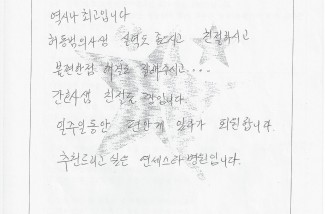 역시나 최고입니다
허동범의사샘 실력도 좋으시고 친절하시고
불편한점 해결로 잘해주시고...
간호사샘 친절도 짱입니다.
일주일동안 편안게 있다가 퇴원합니다.
추천드리고 싶은 연세스타병원입니다.